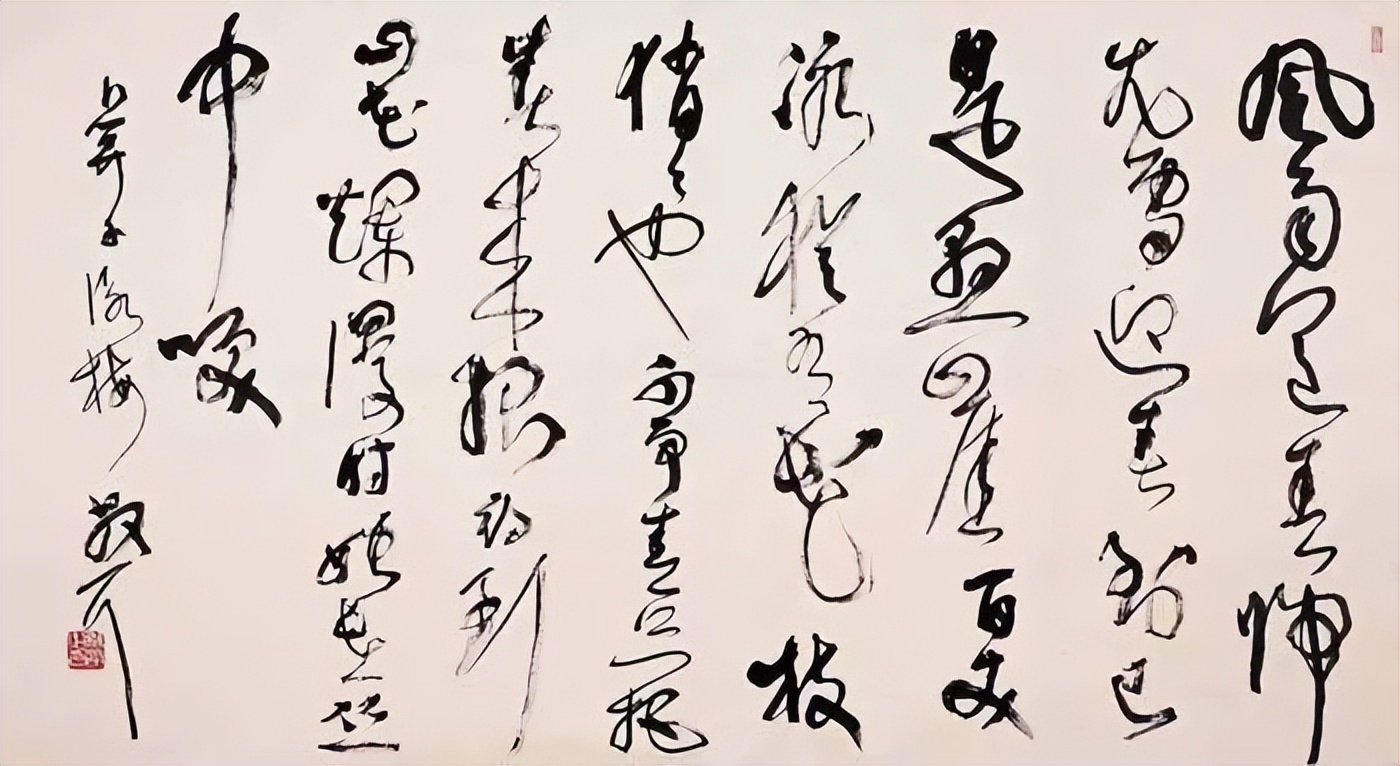 風雨送春帰
飛雪迎春到已
是懸崖百丈
冰猶有花枝
俏〻也不争春只把
春来报待到
山花爛漫时她在丛
中笑
卜算子咏梅